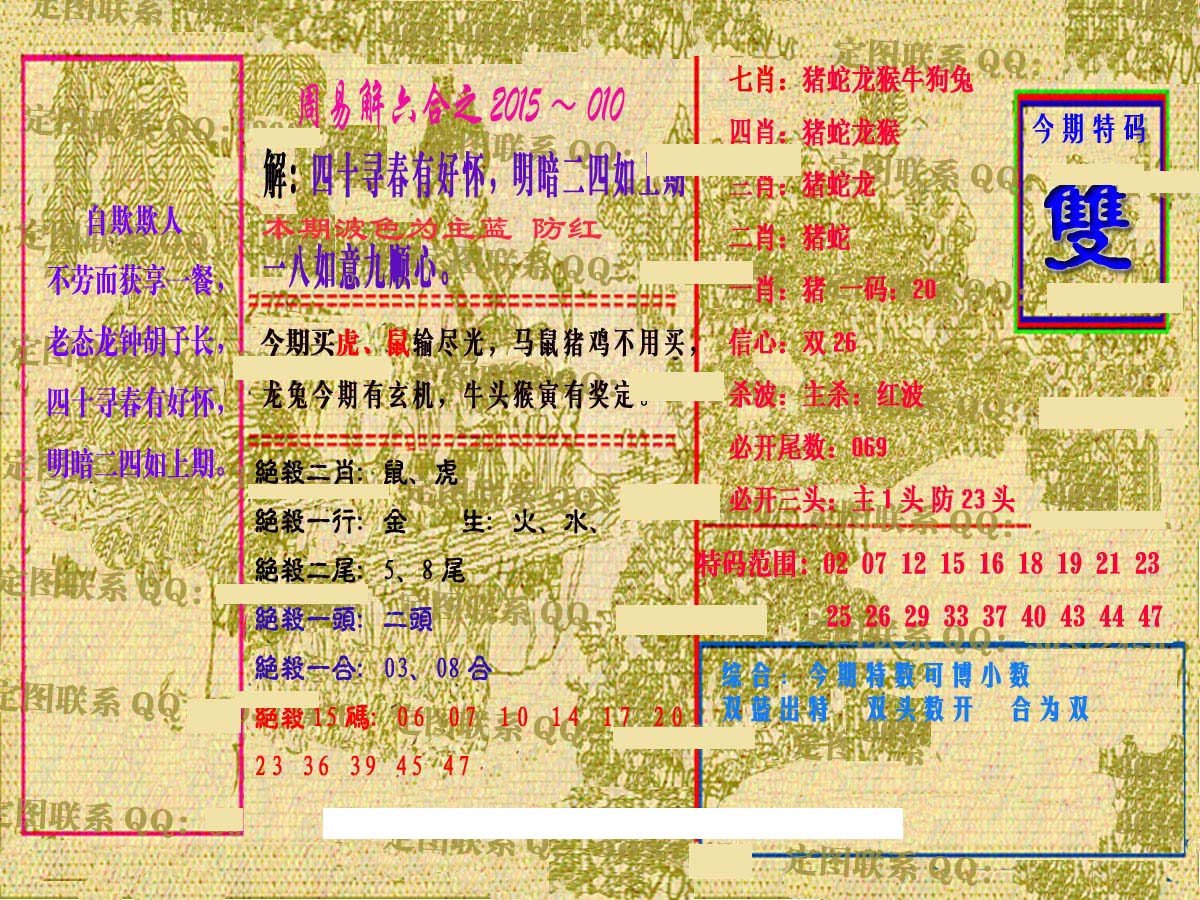 自欺欺人
不劳而获享一餐，
老态龙钟胡子长，
四十寻春有好怀，
明暗二四如上期。
周易解六合之 2015～010
解：四十寻春有好怀，明暗二四如上期
本期波色为主蓝 防红
一八如意九顺心。
今期买虎、鼠输尽光，马鼠猪鸡不用买，
龙兔今期有玄机，牛头猴寅有奖定。
絕殺二肖：鼠、虎
絕殺一行：金 生：火、水、
絕殺二尾：5、8尾
絕殺一頭：二頭
絕殺一合：03、08合
絕殺15碼：06 07 10 14 17 20
23 36 39 45 47
七肖：猪蛇龙猴牛狗兔
四肖：猪蛇龙猴
三肖：猪蛇龙
二肖：猪蛇
一肖：猪 一码：20
信心：双26
杀波：主杀：红波
必开尾数：069
必开三头：主1头防23头
今期特码
雙
特码范围：02 07 12 15 16 18 19 21 23
25 26 29 33 37 40 43 44 47
综合：今期特数可博小数
双蓝出特 双头数开 合为双
定图联系 QQ：